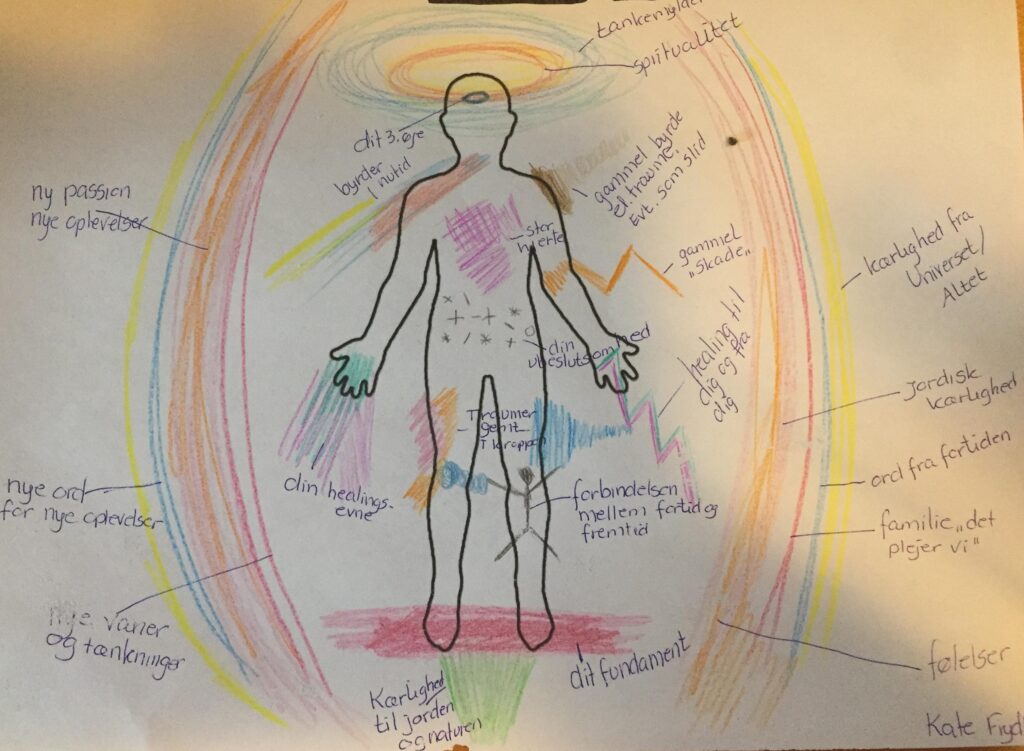 tankemylder
spiritualitet
dit 3. øje
byrder
i nutid
gammel byrde
el. traume.
Evt. som slid
ny passion
nye oplevelser
stor
hjerte
gammel
"skade"
kærlighed fra
Universet/
Altet
din
ubeslutsomhed
healing til
dig og fra
dig
Jordisk
kærlighed
Traumer
gemt
i kroppen
din healings-
evne
forbindelsen
mellem fortid og
fremtid
nye ord
for nye oplevelser
ord fra fortiden
familie "det
plejer vi"
nye vaner
og tænkninger
følelser
dit fundament
Kærlighed
til jorden
og naturen
Kate Fryd